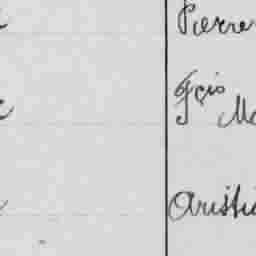 Pierre
Fçois Ma
Aristi